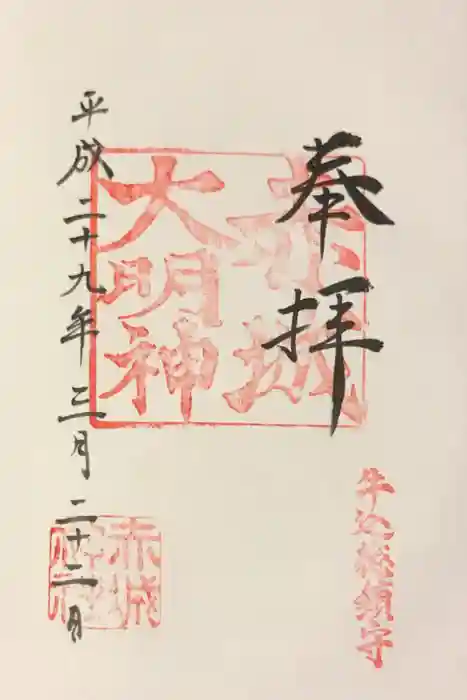 奉拝
赤城
大明神
牛込総鎮守
平成二十九年三月二十二日
赤城
神社